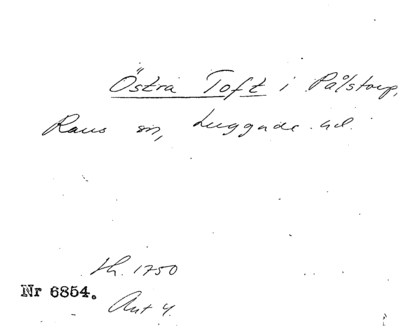 Östra Toft i Pålstorp,
Raus sn, Luggude hd.
Lh. 1750
Nr 6854.
Akt 4.